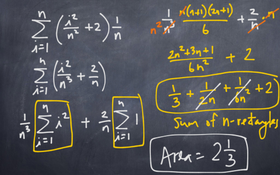 ∑_{i=1}^{n} (i²/n² + 2) 1/n
∑_{i=1}^{n} (i²/n³ + 2/n)
1/n³ ∑_{i=1}^{n} i² + 2/n ∑_{i=1}^{n} 1
1/n³ n(n+1)(2n+1)/6 + 2/n · n
n²
2n²+3n+1/6n² + 2
1/3 + 1/2n + 1/6n² + 2
Sum of n-rectangles
Area = 2 1/3